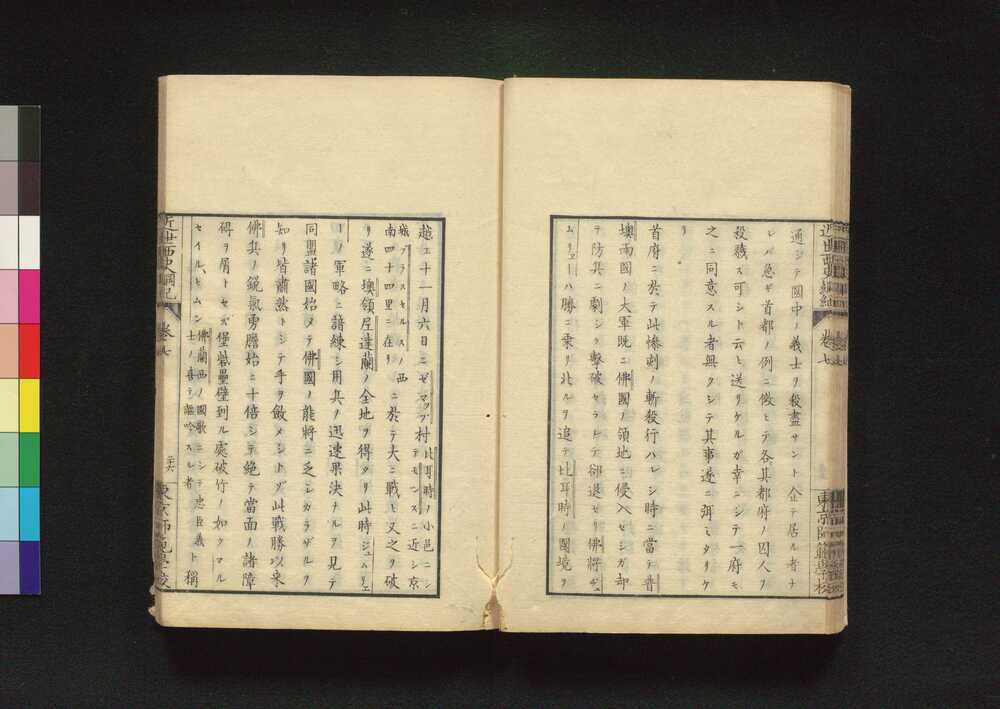 通シテ國中ノ義士ヲ殺盡サント企テ居ル者ナ
レバ急ギ首都ノ例ニ倣ヒテ各其都府ノ囚人ヲ
殺戮ス可シト云ヒ送リケルガ幸ニシテ一府モ
之ニ同意スル者無クシテ其事遂ニ弭ミタリケ
リ
首府ニ於テ此慘刺ノ斬殺行ハレシ時ニ當テ普
墺兩國ノ大軍既ニ佛國ノ領地ニ侵入セシガ却
テ防其ニ劇シク擊破セラレテ卻退セリ佛將ヂュ
ムリエーハ勝ニ乘リ北ルヲ追テ比耳時ノ國境ヲ
近世西史綱紀
卷七
越エ十一月六日ニゼマップ村比耳時ノ小邑ニシ
テモンスニ近シ京
城ブラスセルスノ西
南四十四里ニ在リ
ニ於テ大ニ戰ヒ又之ヲ破
リ遂ニ墺領尼達蘭ノ全地ヲ得タリ此時ジュムリエ
ーノ軍略ニ諳練シ用兵ノ迅速果決ナルヲ見テ
同盟諸國始メテ佛國ノ能將ニ乏シカラザルヲ
知リ皆肅然トシテ手ヲ斂メシトゾ此戰勝以來
佛兵ノ銳氣勇膽始ニ十倍シテ絕テ當面ノ諸障
碍ヲ屑トセズ堡砦壘壁到ル處破竹ノ如クマル
セイルヒムン
佛蘭西ノ國歌ニシテ忠臣義
士ノ喜テ謳吟スル者
ト稱
近世西史綱紀
卷七
二十六